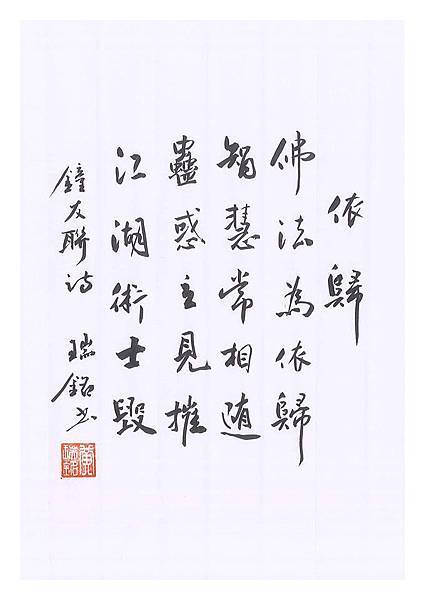 依歸
佛法為依歸
智慧常相随
蠱惑主見摧
江湖術士毀
鐘友聯诗 瑞銘书